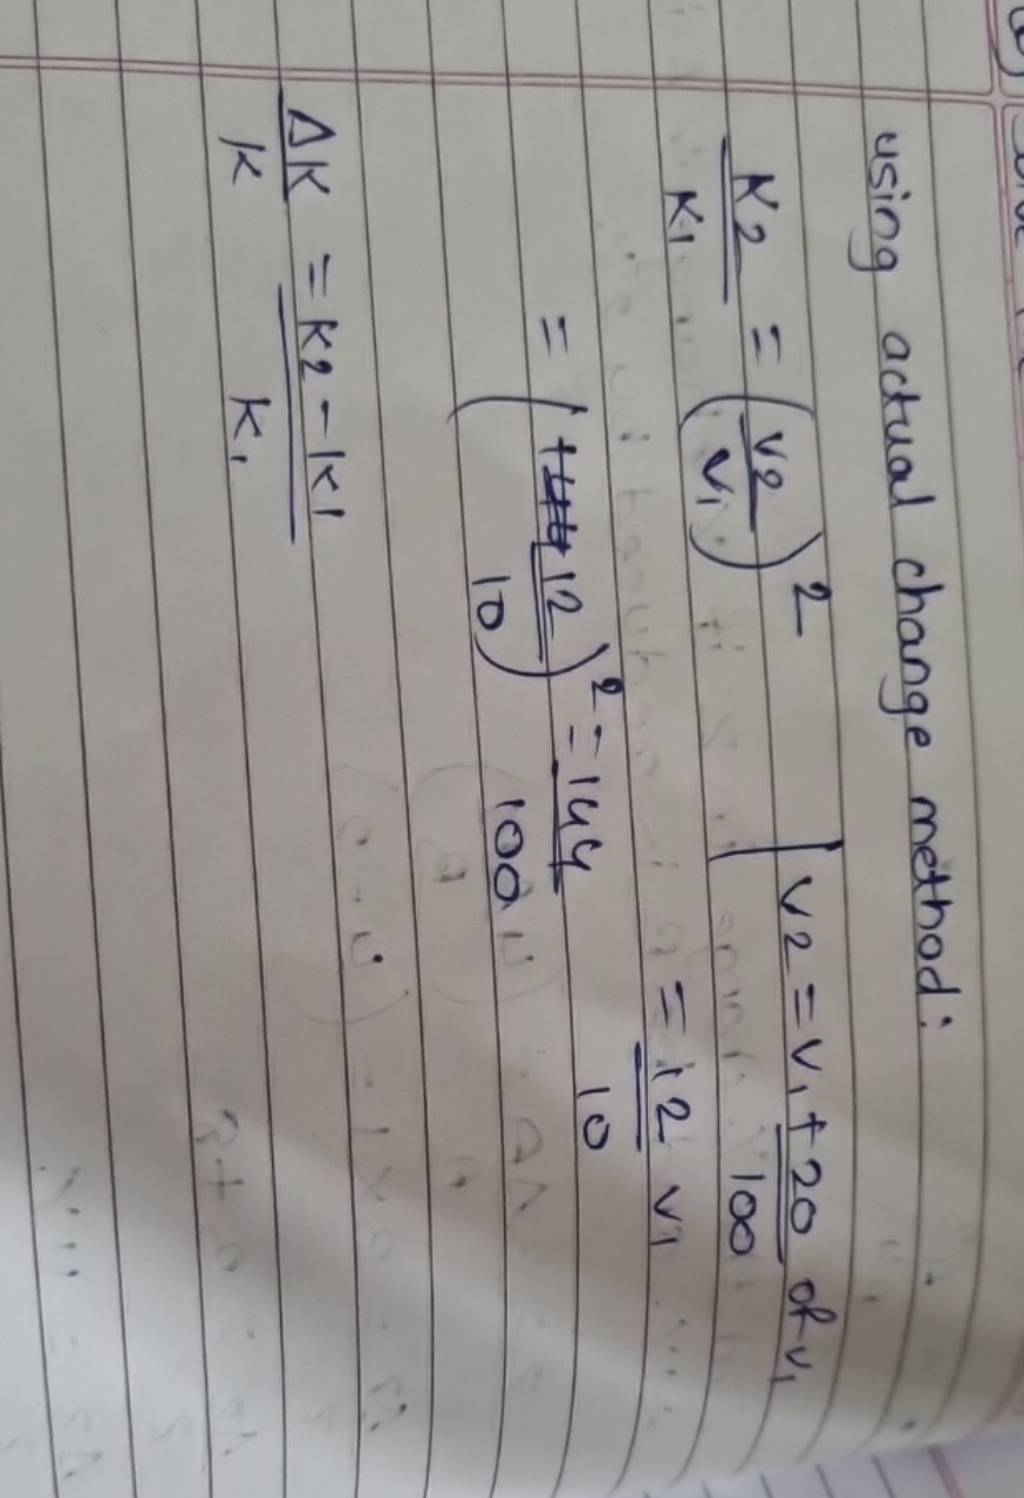 using actual change method:
K2/K1 = (V2/V1)² | V2 = V1 + 20/100 of V1
= 12/10 V1
= (12/10)² = 144/100
ΔK/K = K2 - K1/K1